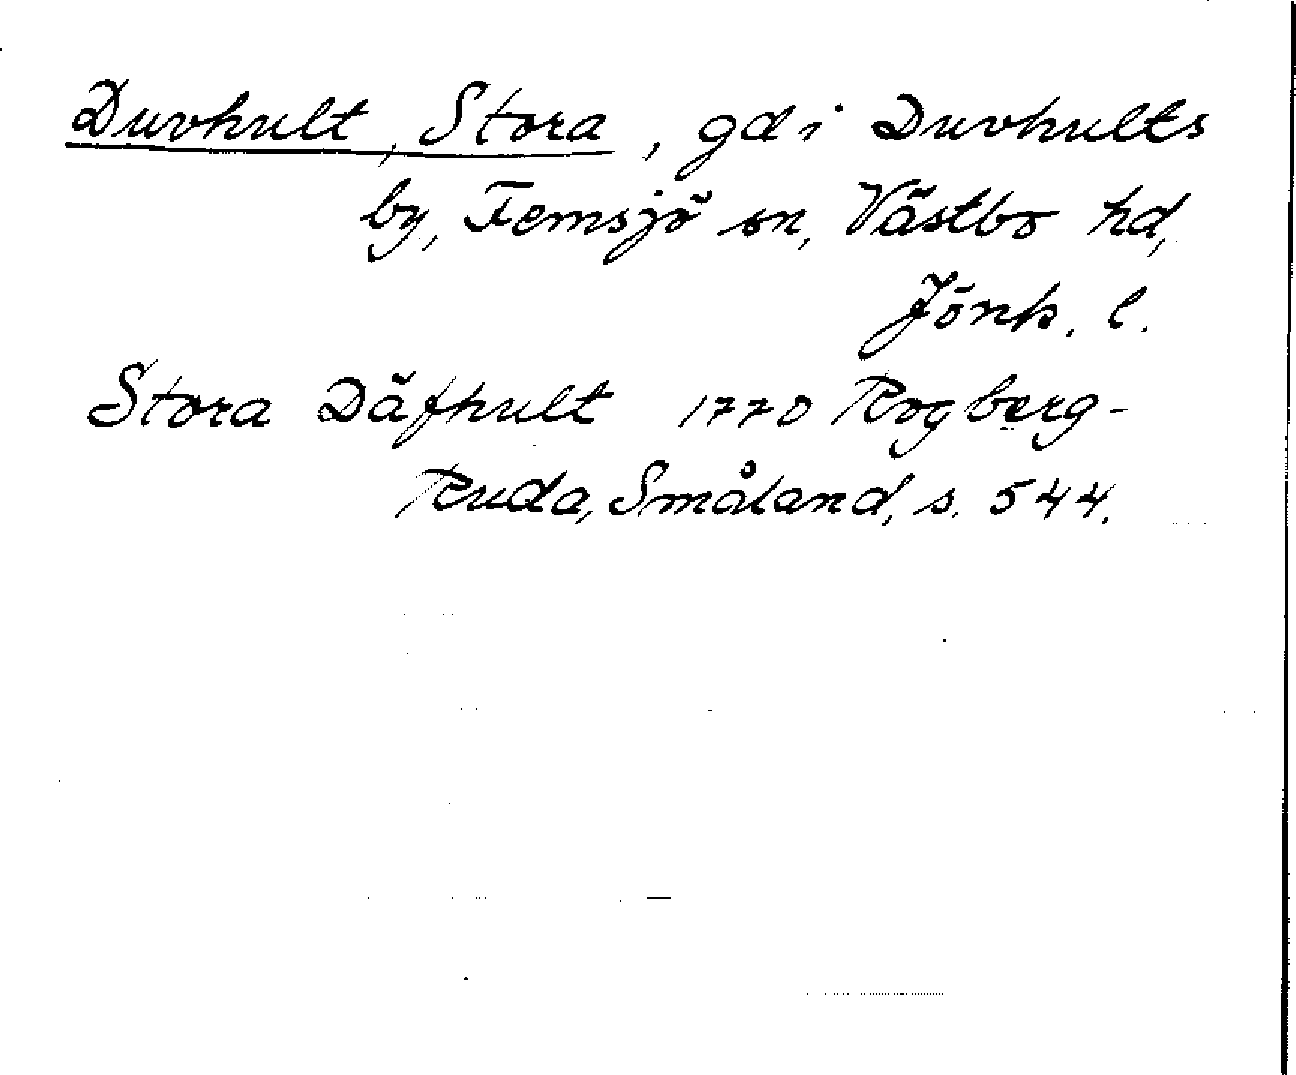 Duvhult, Stora, gd i Duvhults
by, Femsjö sn, Västbo hd,
Jönk. l.
Stora Däfhult 1770 Rogberg-
Ruda, Småland, s. 544.